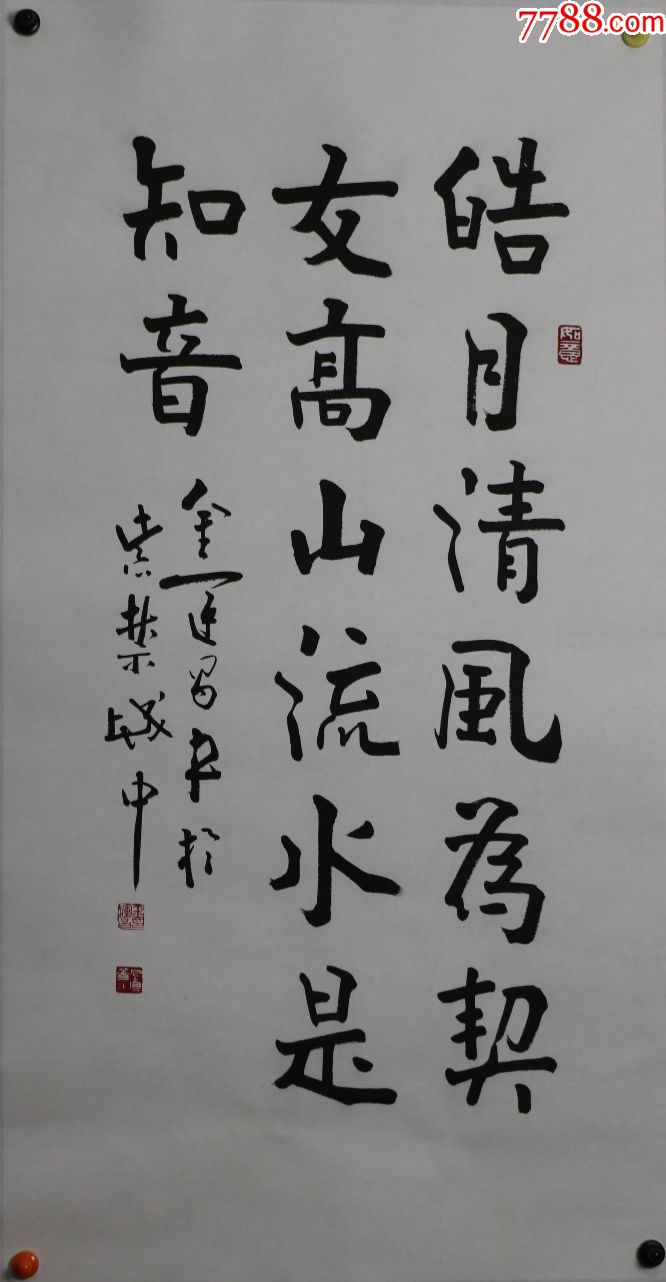 7788.com
皓月清風為契
友高山流水是
知音
金運昌書於
紫禁城中